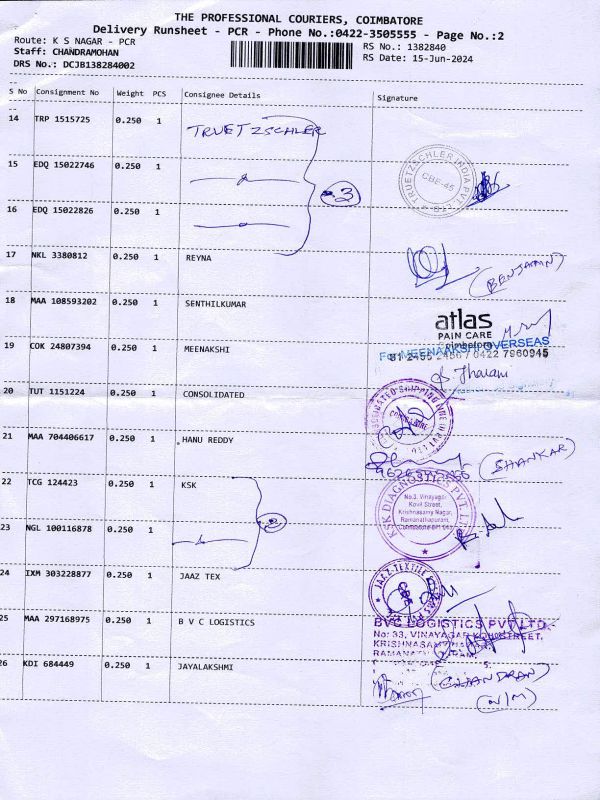 THE PROFESSIONAL COURIERS, COIMBATORE
Delivery Runsheet - PCR - Phone No.:0422-3505555 - Page No.:2
Route: K S NAGAR - PCR
RS No.: 1382840
Staff: CHANDRAMOHAN
RS Date: 15-Jun-2024
DRS No.: DCJB138284002
S No Consignment No Weight PCS Consignee Details Signature
14 TRP 1515725 0.250 1 TRUETZSCHLER
15 EDQ 15022746 0.250 1
TRUETZSCHLER INDIA PVT. LTD
CBE-45
3
16 EDQ 15022826 0.250 1
17 NKL 3380812 0.250 1 REYNA
(BENJAMIN)
18 MAA 108593202 0.250 1 SENTHILKUMAR
atlas
PAIN CARE
19 COK 24807394 0.250 1 MEENAKSHI
For MEENAKSHI OVERSEAS
0422 7960945
20 TUT 1151224 0.250 1 CONSOLIDATED
CONSOLIDATED SHIPPING LINE
21 MAA 704406617 0.250 1 HANU REDDY
(SHANKAR)
22 TCG 124423 0.250 1 KSK
KSK DIAGNOSTICS PVT. LTD
No.3, Vinayagar
Kovil Street,
Krishnasamy Nagar,
Ramanathapuram,
23 NGL 100116878 0.250 1
24 IXM 303228877 0.250 1 JAAZ TEX
JAAZ-TEXTILE
CBE
25 MAA 297168975 0.250 1 B V C LOGISTICS
BVC LOGISTICS PVT LTD.
No: 33, VINAYAGAR KOVIL STREET,
26 KDI 684449 0.250 1 JAYALAKSHMI
(CHANDRAN)